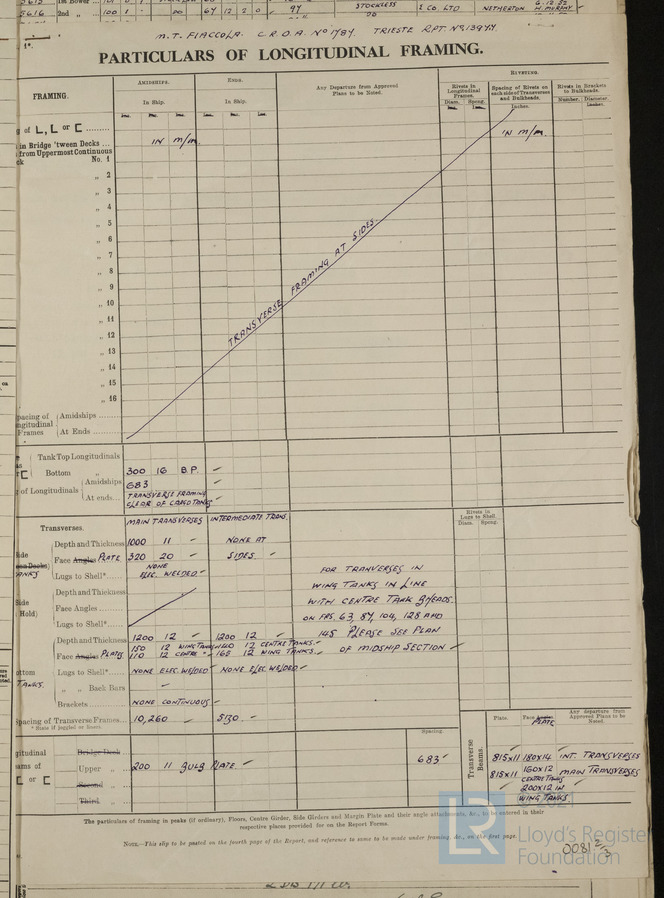 5616 2nd „ 100 1 - 20 67 12 2 0 97 STOCKLESS & CO. LTD NETHERTON
M.T. FIACCOLA. C.R.D.A. No 1784. TRIESTE RPT. No 13944
PARTICULARS OF LONGITUDINAL FRAMING.
FRAMING.
AMIDSHIPS.
ENDS.
Any Departure from Approved Plans to be Noted.
RIVETING.
In Ship.
In Ship.
Rivets in Longitudinal Frames.
Spacing of Rivets on each side of Transverses and Bulkheads.
Rivets in Brackets to Bulkheads.
Diam. Spcng.
Number. Diameter.
Inches.
g of L, L or C
in Bridge 'tween Decks ...
IN m/m.
IN m/m.
from Uppermost Continuous
ck No. 1
„ 2
„ 3
„ 4
„ 5
„ 6
„ 7
„ 8
„ 9
„ 10
„ 11
„ 12
„ 13
„ 14
„ 15
„ 16
TRANSVERSE FRAMING AT SIDES.
pacing of Amidships
ngitudinal
Frames At Ends
Tank Top Longitudinals
Bottom „ 300 16 B.P. ✓
g of Longitudinals Amidships 683 ✓
At ends... TRANSVERSE FRAMING
CLEAR OF CARGO TANKS ✓
Transverses.
MAIN TRANSVERSES INTERMEDIATE TRANS.
Rivets in Lugs to Shell.
Diam. Spcng.
Depth and Thickness 1000 11 ✓ NONE AT
Face Angles PLATE 320 20 ✓ SIDES. ✓
Lugs to Shell* NONE ELEC. WELDED ✓
Depth and Thickness
Face Angles
Lugs to Shell*
FOR TRANVERSES IN
WING TANKS IN LINE
WITH CENTRE TANK BHEADS.
ON FRS. 63, 87, 104, 128 AND
145 PLEASE SEE PLAN
OF MIDSHIP SECTION ✓
Depth and Thickness 1200 12 ✓ 1200 12 ✓
Face Angles PLATES. 150 12 WING TANKS 12 CENTRE TANKS.
110 12 CENTRE „ 165 12 WING TANKS.
ottom
TANKS.
Lugs to Shell* NONE ELEC. WELDED ✓ NONE ELEC. WELDED ✓
„ „ Back Bars ✓
Brackets NONE CONTINUOUS ✓
Spacing of Transverse Frames... 10,260 ✓ 5130 ✓
* State if joggled or liners.
Spacing.
ngitudinal
eams of
C or C
Bridge Deck
Upper „ 200 11 BULB PLATE. ✓ 683 ✓
Second „
Third „
Transverse Beams.
Plate.
Face Angles PLATE
Any departure from Approved Plans to be Noted.
815x11 180x14 INT. TRANSVERSES
815x11 160x12 MAIN TRANSVERSES
CENTRE TANKS
✓ 200x12 IN
WING TANKS
The particulars of framing in peaks (if ordinary), Floors, Centre Girder, Side Girders and Margin Plate and their angle attachments, &c., to be entered in their
respective places provided for on the Report Forms.
NOTE.—This slip to be pasted on the fourth page of the Report, and reference to same to be made under framing, &c., on the first page.
LR
Lloyd's Register
Foundation
0081